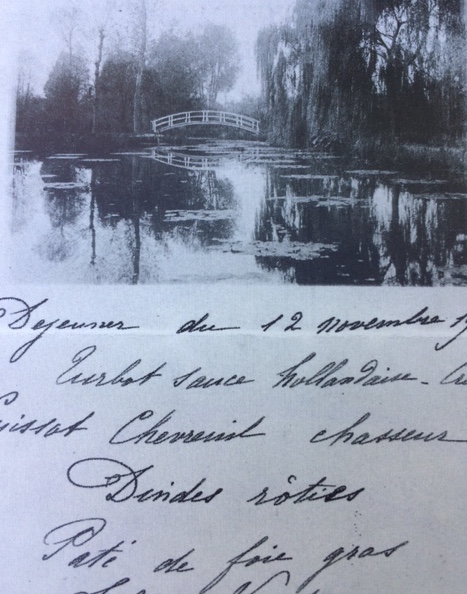 Dejeuner du 12 novembre 19
Turbot sauce hollandaise -
Cuissot Chevreuil chasseur
Dindes rôties
Paté de foie gras